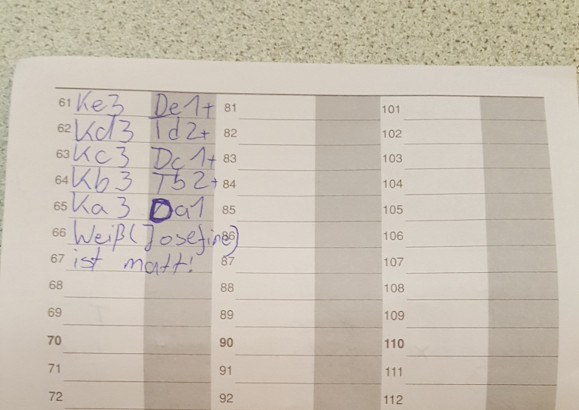 61 Ke3 De1+ 81 101
62 Kd3 Td2+ 82 102
63 Kc3 Dc1+ 83 103
64 Kb3 Tb2+ 84 104
65 Ka3 Da1 85 105
66 Weiß (Josefine) 86 106
67 ist matt! 87 107
68 88 108
69 89 109
70 90 110
71 91 111
72 92 112